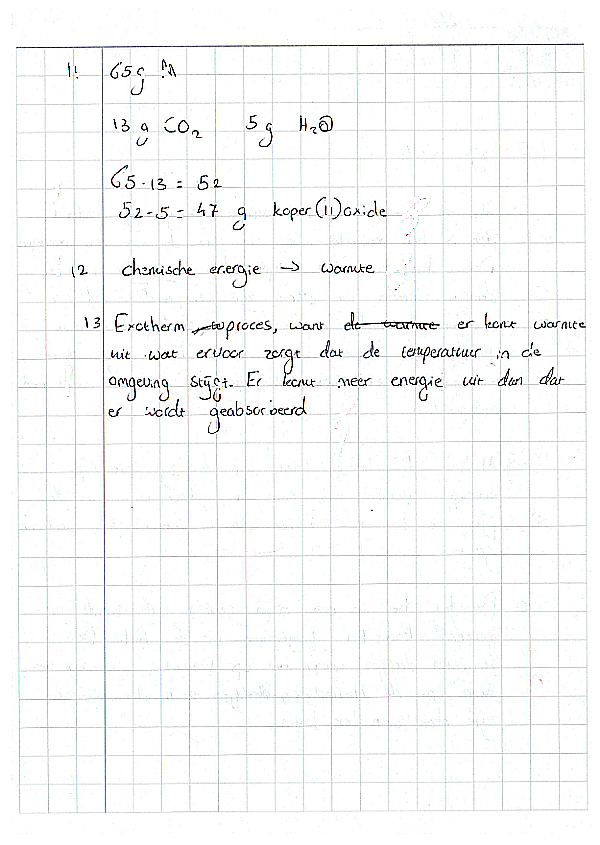 11 65g
13 g CO₂ 5 g H₂O
65-13 = 52
52-5 = 47 g koper(II)oxide
12 chemische energie → warmte
13 Exotherm proces, want de warmte er komt warmte
uit wat ervoor zorgt dat de temperatuur in de
omgeving stijgt. Er komt meer energie uit dan dat
er wordt geabsorbeerd